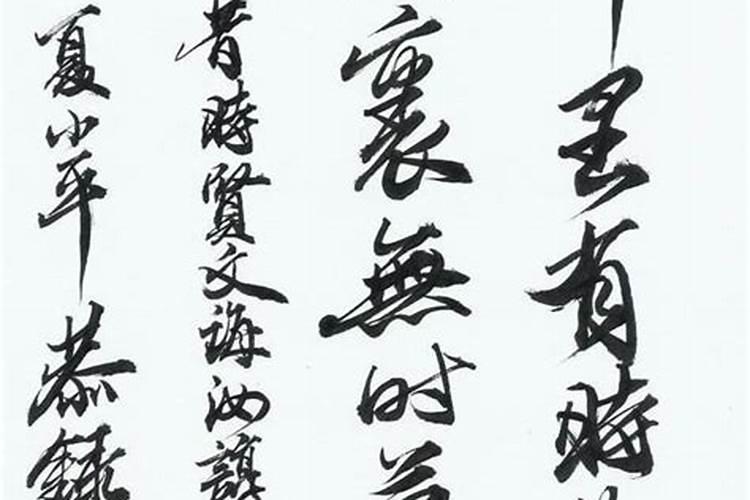 里有時
裏無时
昔時賢文誨汝諄
夏小平恭錄